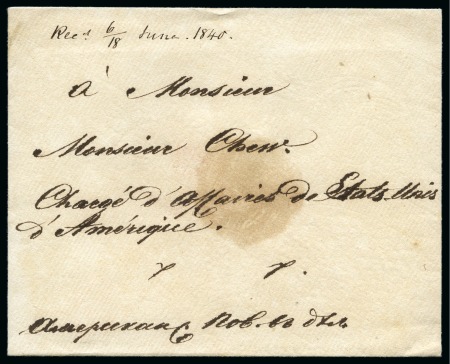 Recd 6/18 June. 1840.
à Monsieur
Monsieur Chew.
Chargé d'Affaires de Etats Unis
d'Amérique.
Американс Пов. въ дѣл.